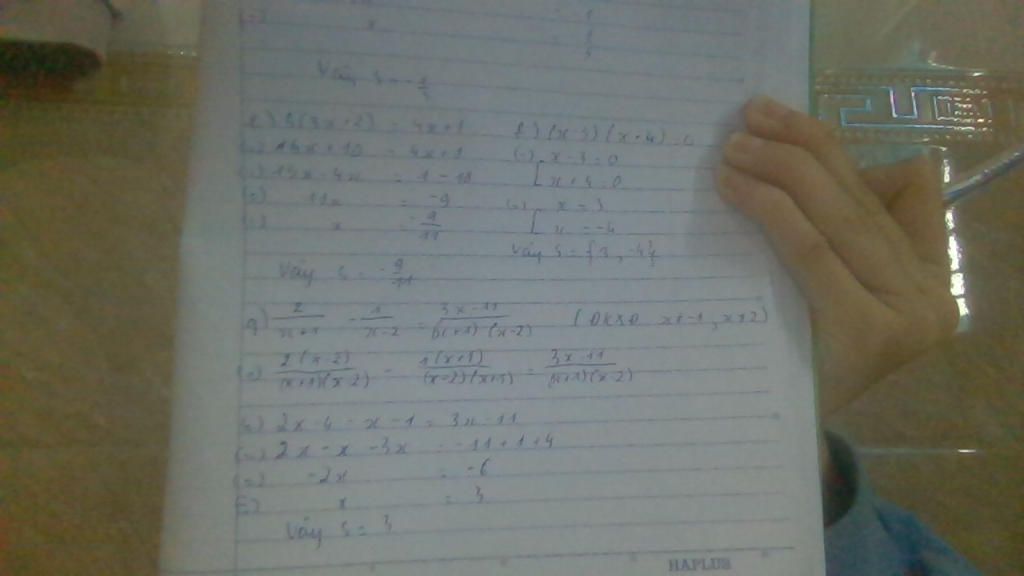 (=) x = 1/5
Vậy S = -1/5
e) 5(3x+2) = 4x+1
(=) 15x+10 = 4x+1
(=) 15x-4x = 1-10
(=) 11x = -9
(=) x = -9/11
Vậy S = -9/11
f) (x-3)(x+4) = 0
(=) [x-3=0
[x+4=0
(=) [x = 3
[x = -4
Vậy S = {3, -4}
g) 2/(x+1) - 1/(x-2) = (3x-11)/((x+1)(x-2)) (ĐKXĐ x≠-1, x≠2)
(=) 2(x-2)/((x+1)(x-2)) - 1(x+1)/((x-2)(x+1)) = (3x-11)/((x+1)(x-2))
(=) 2x-4-x-1 = 3x-11
(=) 2x-x-3x = -11+1+4
(=) -2x = -6
(=) x = 3
Vậy S = 3
HAPLUS